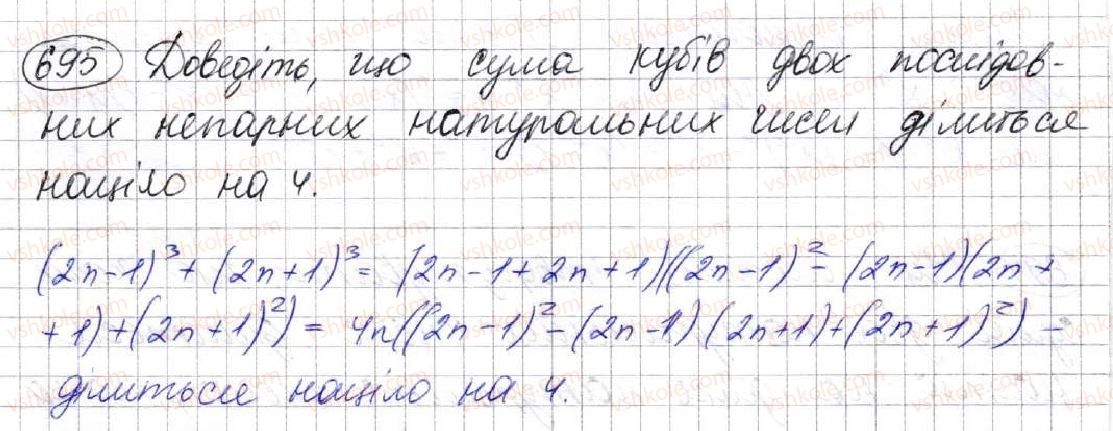 695 Доведіть, що сума кубів двох послідов-
них непарних натуральних чисел ділиться
націло на 4.
(2n-1)³+(2n+1)³=(2n-1+2n+1)((2n-1)²-(2n-1)(2n+
+1)+(2n+1)²)=4n((2n-1)²-(2n-1)(2n+1)+(2n+1)²) -
ділиться націло на 4.